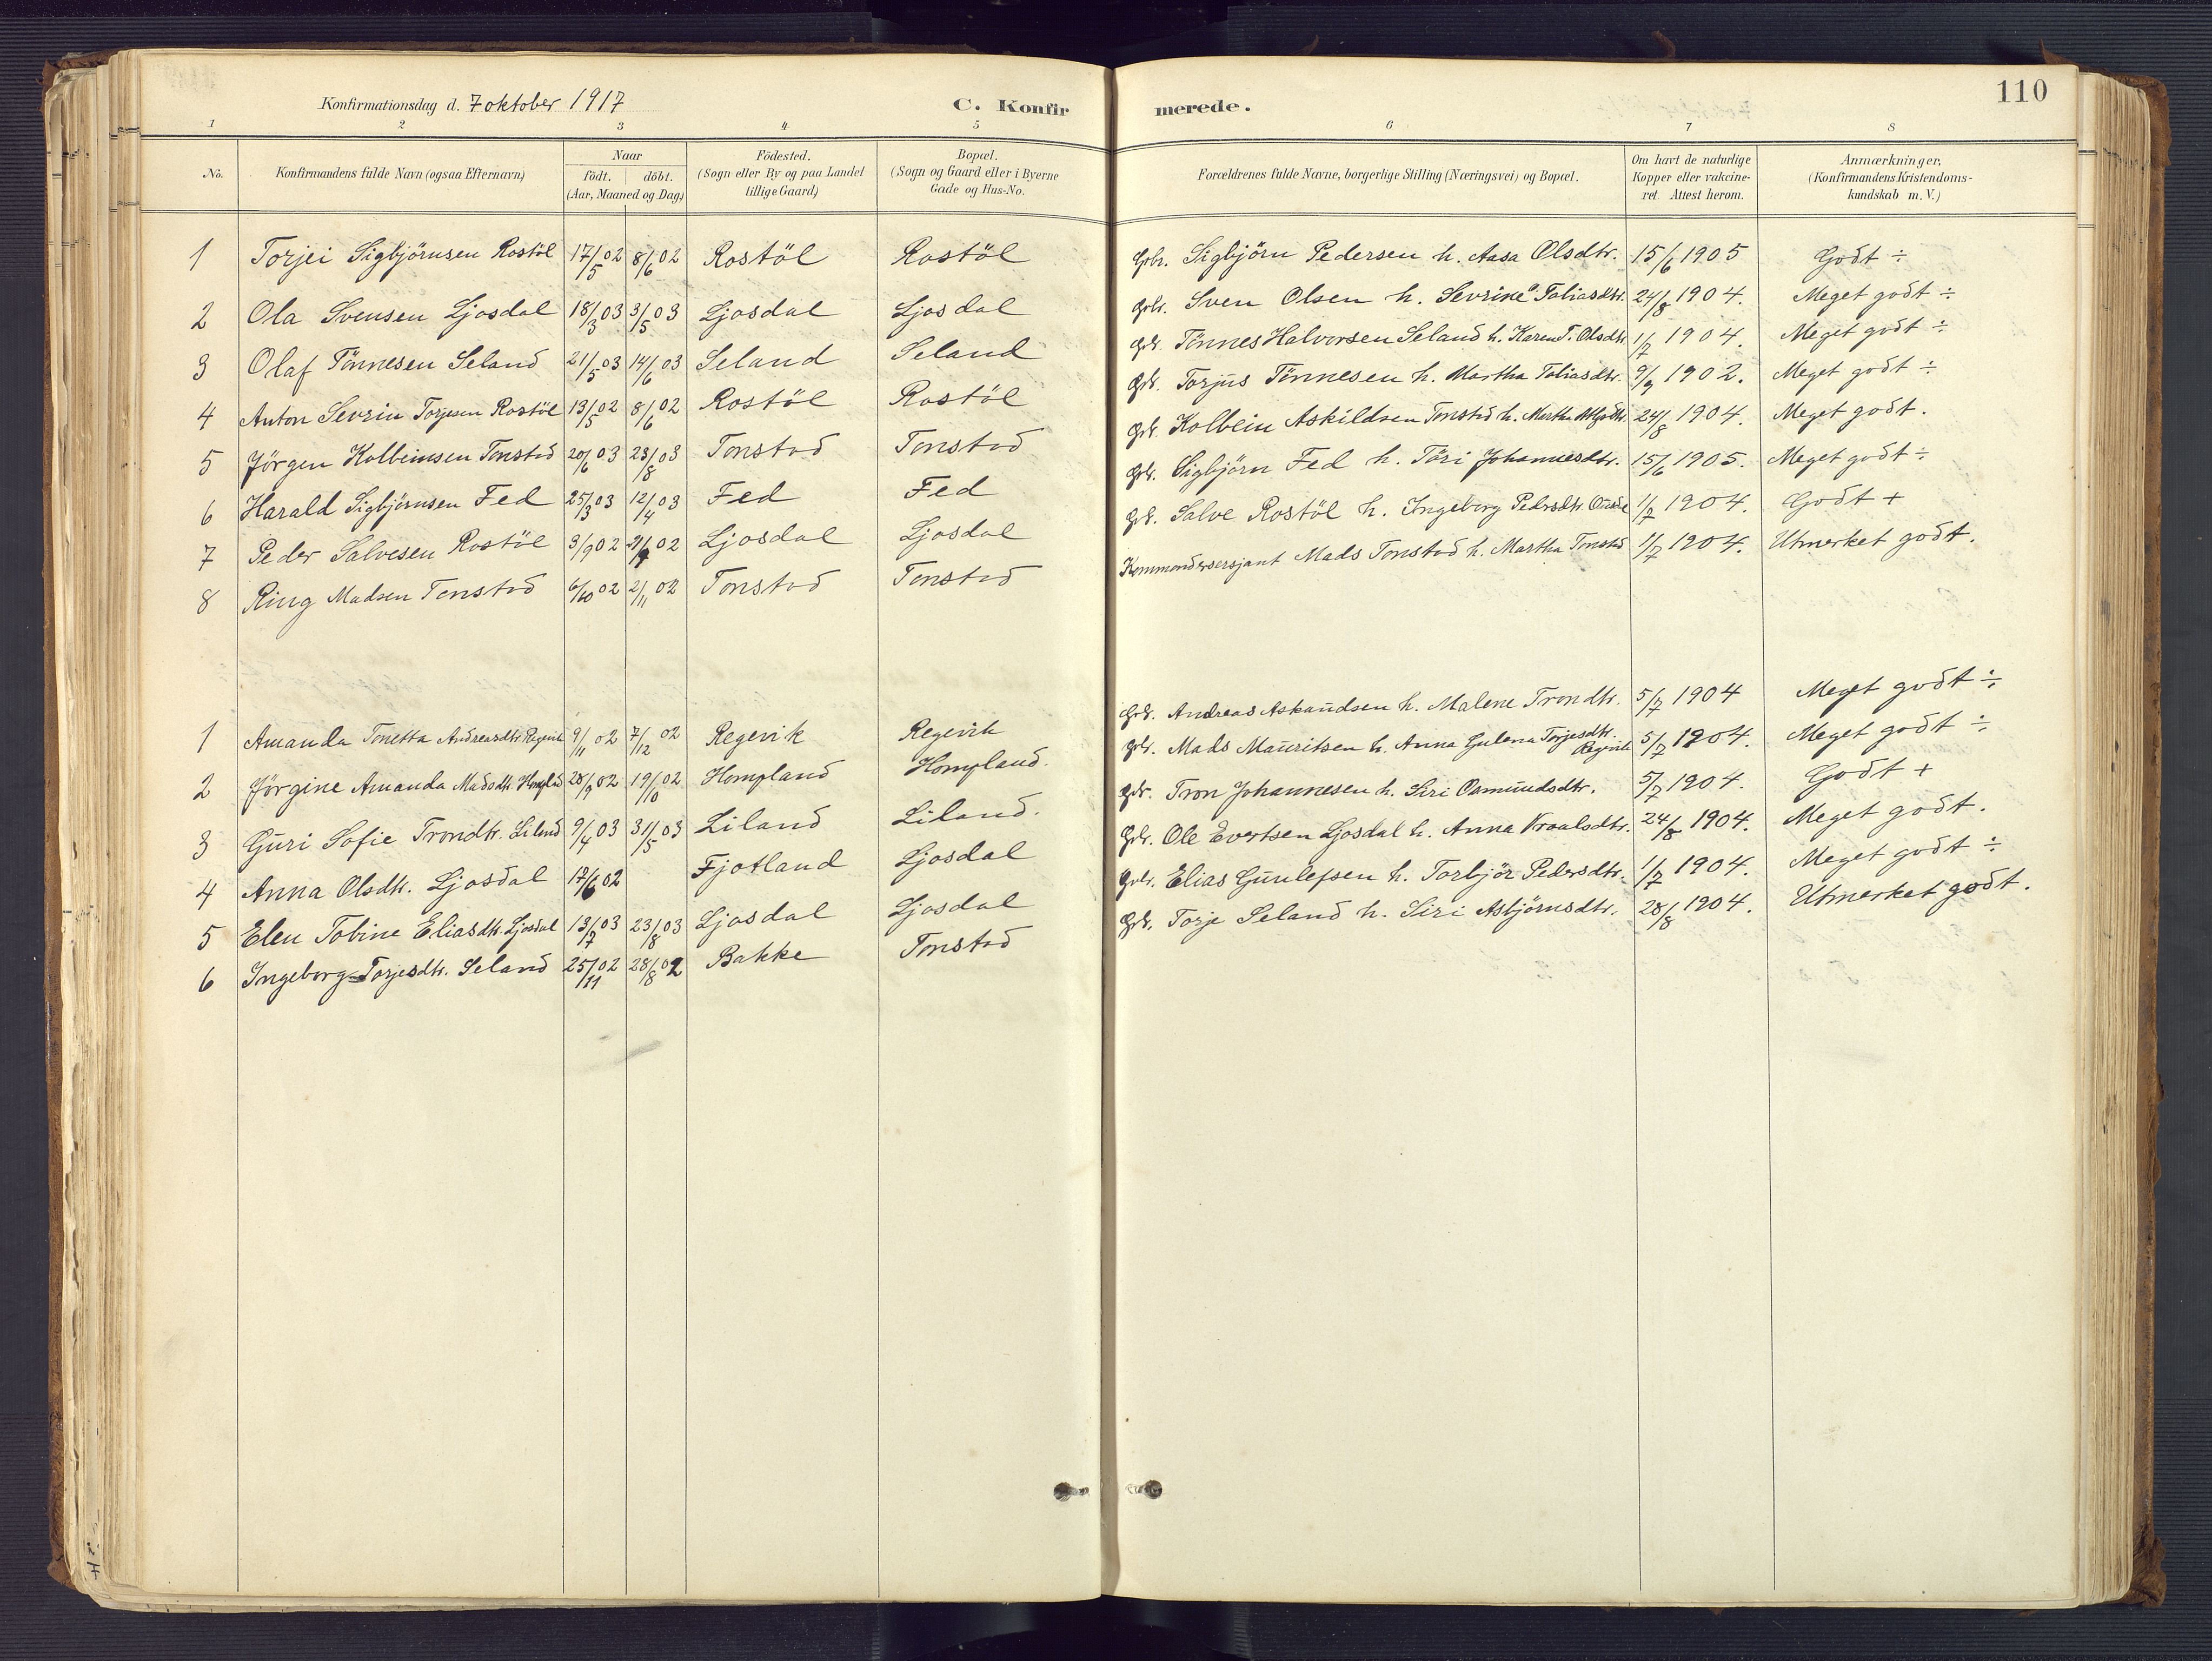 110
Konfirmationsdag d. 7 oktober 1917
C. Konfirmerede.
1 2 3 4 5 6 7 8
No.
Konfirmandens fulde Navn (ogsaa Efternavn)
Naar
födt. | döbt.
(Aar, Maaned og Dag)
Födested.
(Sogn eller By og paa Landet
tillige Gaard)
Bopæl.
(Sogn og Gaard eller i Byerne
Gade og Hus-No.
Forældrenes fulde Navne, borgerlige Stilling (Næringsvei) og Bopæl.
Om havt de naturlige
Kopper eller vakcine-
ret. Attest herom.
Anmærkninger,
(Konfirmandens Kristendoms-
kundskab m. V.)
1 Torjei Sigbjörnsen Rostöl 17/5 02 8/6 02 Rostöl Rostöl Gbr. Sigbjörn Pedersen h. Aasa Olsdtr. 15/6 1905 Godt ÷
2 Ola Svensen Ljosdal 18/3 03 3/5 03 Ljosdal Ljosdal Gbr. Sven Olsen h. Sevrine Tobiasdtr. 24/8 1904. Meget godt ÷
3 Olaf Tönnesen Seland 21/5 03 14/6 03 Seland Seland Gbr. Tönnes Halvorsen Seland h. Karen T. Olsdtr. 1/7 1904. Meget godt ÷
4 Anton Sevrin Torjusen Rostöl 19/5 02 8/6 02 Rostöl Rostöl Gbr. Torjus Tönnesen h. Martha Tobiasdtr. 9/9 1902. Meget godt ÷
5 Jörgen Kolbeinsen Tonstad 20/6 03 23/8 03 Tonstad Tonstad Gbr. Kolbein Askildsen Tonstad h. Martha 24/8 1904. Meget godt.
6 Harald Sigbjörnsen Fed 25/3 03 12/4 03 Fed Fed Gbr. Sigbjörn Fed h. Töri Johannesdtr. 15/6 1905. Meget godt ÷
7 Peder Salvesen Rostöl 3/9 02 21/9 02 Ljosdal Ljosdal Gbr. Salve Rostöl h. Ingeborg Pedersdtr. 1/7 1904. Godt +
8 Ring Madsen Tonstad 6/10 02 2/11 02 Tonstad Tonstad Kommandersersjant Mads Tonstad h. Martha Tonstad 1/7 1904. Utmerket godt.
1 Amanda Tonetta Andreasdtr. Regevik 9/11 02 7/12 02 Regevik Regevik Gbr. Andreas Askaudsen h. Malene Trondtr. 5/7 1904 Meget godt ÷
2 Jörgine Amanda Madsdtr. Hompland 28/9 02 19/10 02 Hompland Hompland. Gbr. Mads Mauritsen h. Anna Gulena Torjesdtr. Regevik 5/7 1904. Meget godt ÷
3 Guri Sofie Trondtr. Liland 9/4 03 31/5 03 Liland Liland. Gbr. Tron Johannesen h. Siri Osmundsdtr. 5/7 1904. Godt +
4 Anna Olsdtr. Ljosdal 17/6 02 Fjotland Ljosdal Gbr. Ole Evertsen Ljosdal h. Anna Vroalsdtr. 24/8 1904. Meget godt.
5 Elen Tobine Eliasdtr. Ljosdal 13/7 03 23/8 03 Ljosdal Ljosdal Gbr. Elias Gunlefsen h. Torbjör Pedersdtr. 1/7 1904. Meget godt ÷
6 Ingeborg Torjesdtr. Seland 25/11 02 28/8 02 Bakke Tonstad Gbr. Torje Seland h. Siri Asbjörnsdtr. 28/8 1904. Utmerket godt.